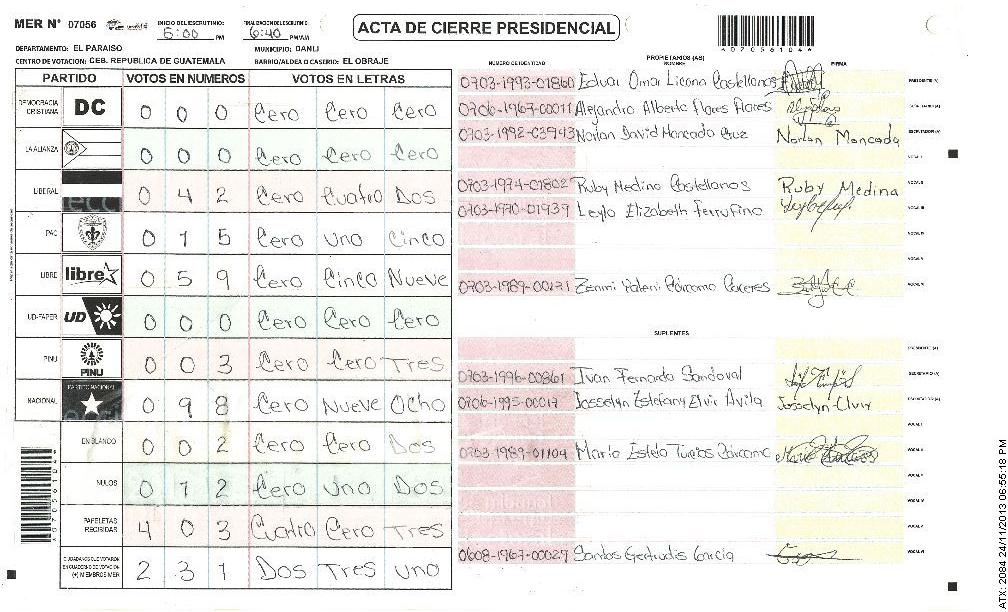 MER N° 07056
INICIO DEL ESCRUTINIO: 5:00 PM
FINALIZACION DEL ESCRUTINIO: 6:40 PM/AM
ACTA DE CIERRE PRESIDENCIAL
4070561044
DEPARTAMENTO: EL PARAISO
MUNICIPIO: DANLI
CENTRO DE VOTACION: CEB. REPUBLICA DE GUATEMALA
BARRIO/ALDEA O CASERIO: EL OBRAJE
PARTIDO VOTOS EN NUMEROS VOTOS EN LETRAS
DEMOCRACIA CRISTIANA DC 0 0 0 Cero Cero Cero
LA ALIANZA 0 0 0 Cero Cero Cero
LIBERAL 0 4 2 Cero Cuatro Dos
PAC 0 1 5 Cero Uno Cinco
LIBRE libre 0 5 9 Cero Cinco Nueve
UD-FAPER UD 0 0 0 Cero Cero Cero
PINU PINU 0 0 3 Cero Cero Tres
NACIONAL PARTIDO NACIONAL 0 9 8 Cero Nueve Ocho
EN BLANCO 0 0 2 Cero Cero Dos
NULOS 0 1 2 Cero Uno Dos
PAPELETAS RECIBIDAS 4 0 3 Cuatro Cero Tres
CIUDADANOS QUE VOTARON EN CUADERNO DE VOTACION (+) MIEMBROS MER 2 3 1 Dos Tres Uno
NUMERO DE IDENTIDAD PROPIETARIOS (AS) NOMBRE FIRMA
0703-1993-01860 Edvar Omar Licona Castellanos PRESIDENTE (A)
0706-1967-00011 Alejandro Alberto Flores Flores SECRETARIO (A)
0703-1992-03943 Norlan David Moncada Cruz Norlan Moncada ESCRUTADOR (A)
VOCAL I
0703-1974-01802 Ruby Medina Castellanos Ruby Medina VOCAL II
0703-1970-01939 Leyla Elizabeth Ferrufino VOCAL III
VOCAL IV
VOCAL V
0703-1989-00131 VOCAL VI
SUPLENTES
PRESIDENTE (A)
0703-1996-00861 Ivan Fernando Sandoval SECRETARIO (A)
0706-1995-00017 Josselyn Estefany Elvir Avila Josselyn Elvir ESCRUTADOR (A)
VOCAL I
0703-1989-01104 VOCAL II
VOCAL III
VOCAL IV
VOCAL V
0608-1967-00027 Santos Gertrudis Garcia VOCAL VI
ATX: 2084 24/11/2013 06:55:18 PM